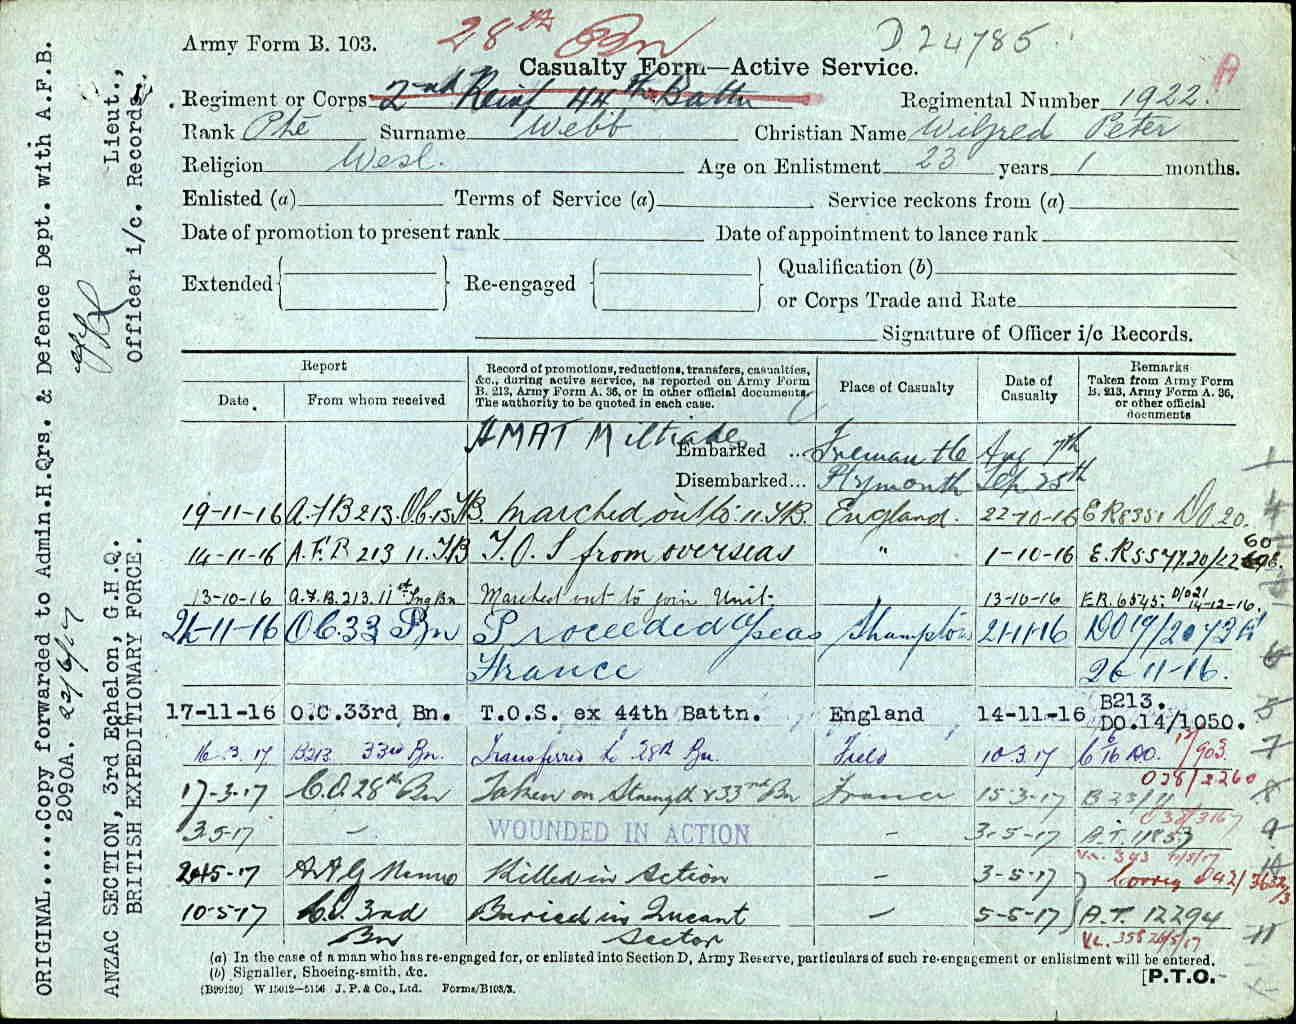 28th Bn
D 24785
Army Form B. 103.
Casualty Form—Active Service.
A
Regiment or Corps 2nd Reinf 44th Battn Regimental Number 1922.
Rank Pte Surname Webb Christian Name Wilfred Peter
Religion Wesl. Age on Enlistment 23 years 1 months.
Enlisted (a) Terms of Service (a) Service reckons from (a)
Date of promotion to present rank Date of appointment to lance rank
Extended Re-engaged Qualification (b)
or Corps Trade and Rate
Signature of Officer i/c Records.
Report
Date. From whom received
Record of promotions, reductions, transfers, casualties,
&c., during active service, as reported on Army Form
B. 213, Army Form A. 36, or in other official documents.
The authority to be quoted in each case.
Place of Casualty
Date of
Casualty
Remarks
Taken from Army Form
B. 213, Army Form A. 36,
or other official
documents
HMAT Miltiade
Embarked ... Fremantle Aug 7th
Disembarked... Plymouth Sep 25th
19-11-16 A.F.B 213. Ob. 13 T.B. Marched out to 11 T.B. England. 22-10-16 ER8351 DO 20.
14-11-16 A.F.B 213 11. T.B T.O.S from overseas " 1-10-16 E.R 5577 20/22 60
13-10-16 A.F.B. 213. 11th Tng Bn Marched out to join Unit. 13-10-16 E.R. 6545: D/o 21 14-12-16.
21-11-16 OC. 33 Bn Proceeded O'seas S'hampton 21-11-16 DO 19/2073
France 26-11-16.
17-11-16 O.C.33rd Bn. T.O.S. ex 44th Battn. England 14-11-16 B213.
DO.14/1050.
16.3.17 B213 33rd Bn. Transferred to 28th Bn. Field 10.3.17 DO. 17/903
O28/2260
17-3-17 C.O. 28th Bn Taken on Strength x 33rd Bn France 15-3-17 B 23/11
C 38/3167
3-5-17 — WOUNDED IN ACTION — 3-5-17 A.T. 11853
Vc. 343 11/5/17
24-5-17 A.A.G Killed in Action — 3-5-17 Correg D42/3632/3
10-5-17 C.O. 3rd Buried in Queant — 5-5-17 A.T. 12294
Bn Sector Vc. 358 26/5/17
(a) In the case of a man who has re-engaged for, or enlisted into Section D, Army Reserve, particulars of such re-engagement or enlistment will be entered.
(b) Signaller, Shoeing-smith, &c.
(B99130) W 15012—5156 J. P. & Co., Ltd. Forms/B103/3.
[P.T.O.
ORIGINAL.....Copy forwarded to Admin.H.Qrs. & Defence Dept. with A.F.B.
2090A. 22/6/17
Lieut.,
Officer i/c. Records.
ANZAC SECTION, 3rd Echelon, G.H.Q.
BRITISH EXPEDITIONARY FORCE.